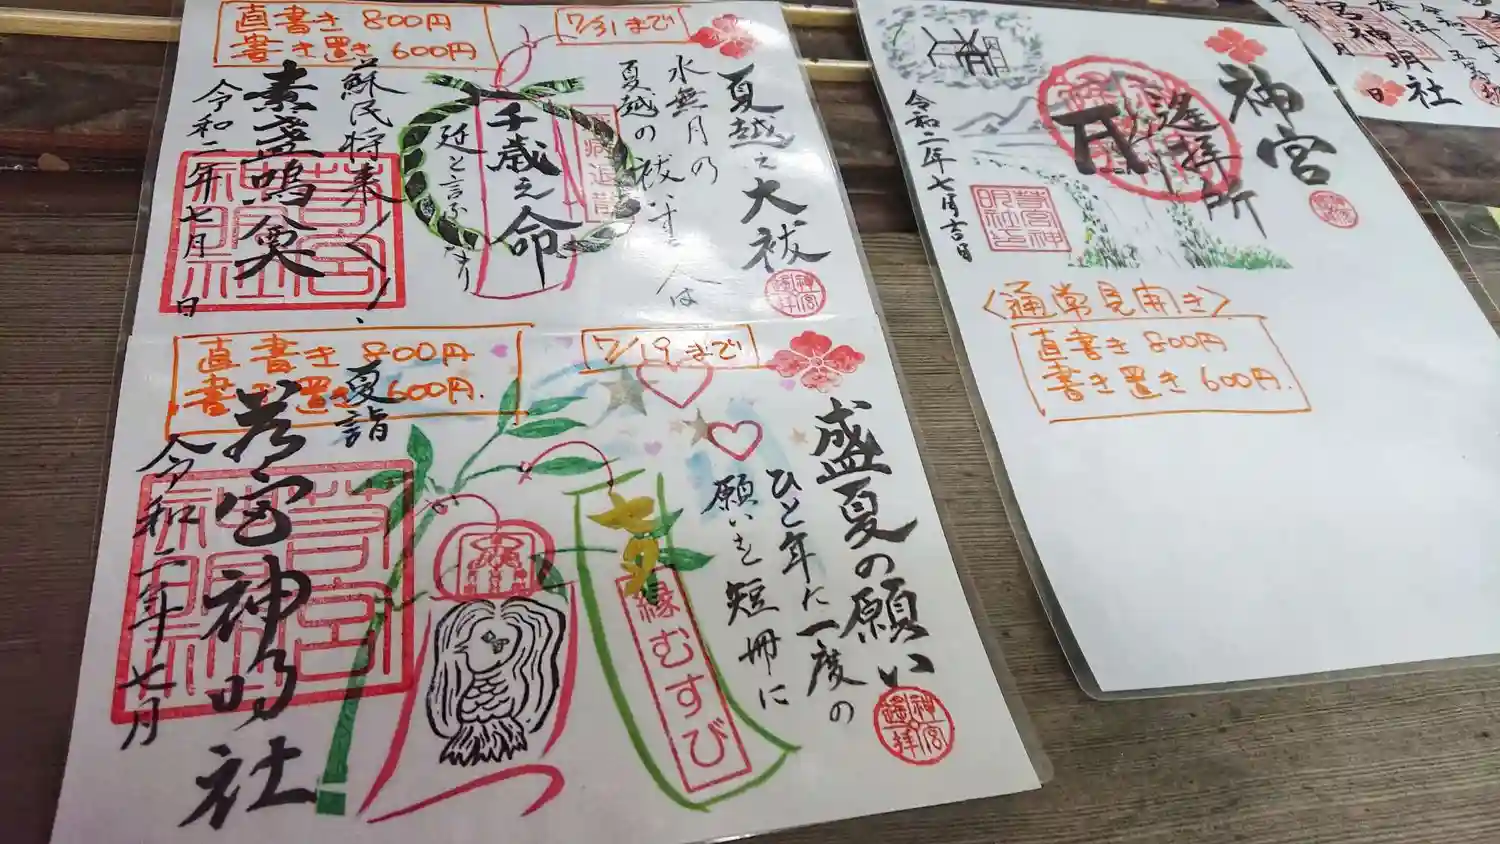 直書き 800円
書き置き 600円
7/31まで
夏越之大祓
水無月の
夏越の祓する人は
千歳之命
延と言ふなり
蘇民将来
素盞嗚尊
令和二年七月 日
直書き 800円
書き置き 600円
7/19まで
盛夏の願い
ひと年に一度の
願いを短冊に
七夕
縁むすび
夏詣
若宮神明社
令和二年七月
神宮
遙拝所
令和二年七月吉日
若宮神明社
〈通常見開き〉
直書き 800円
書き置き 600円.